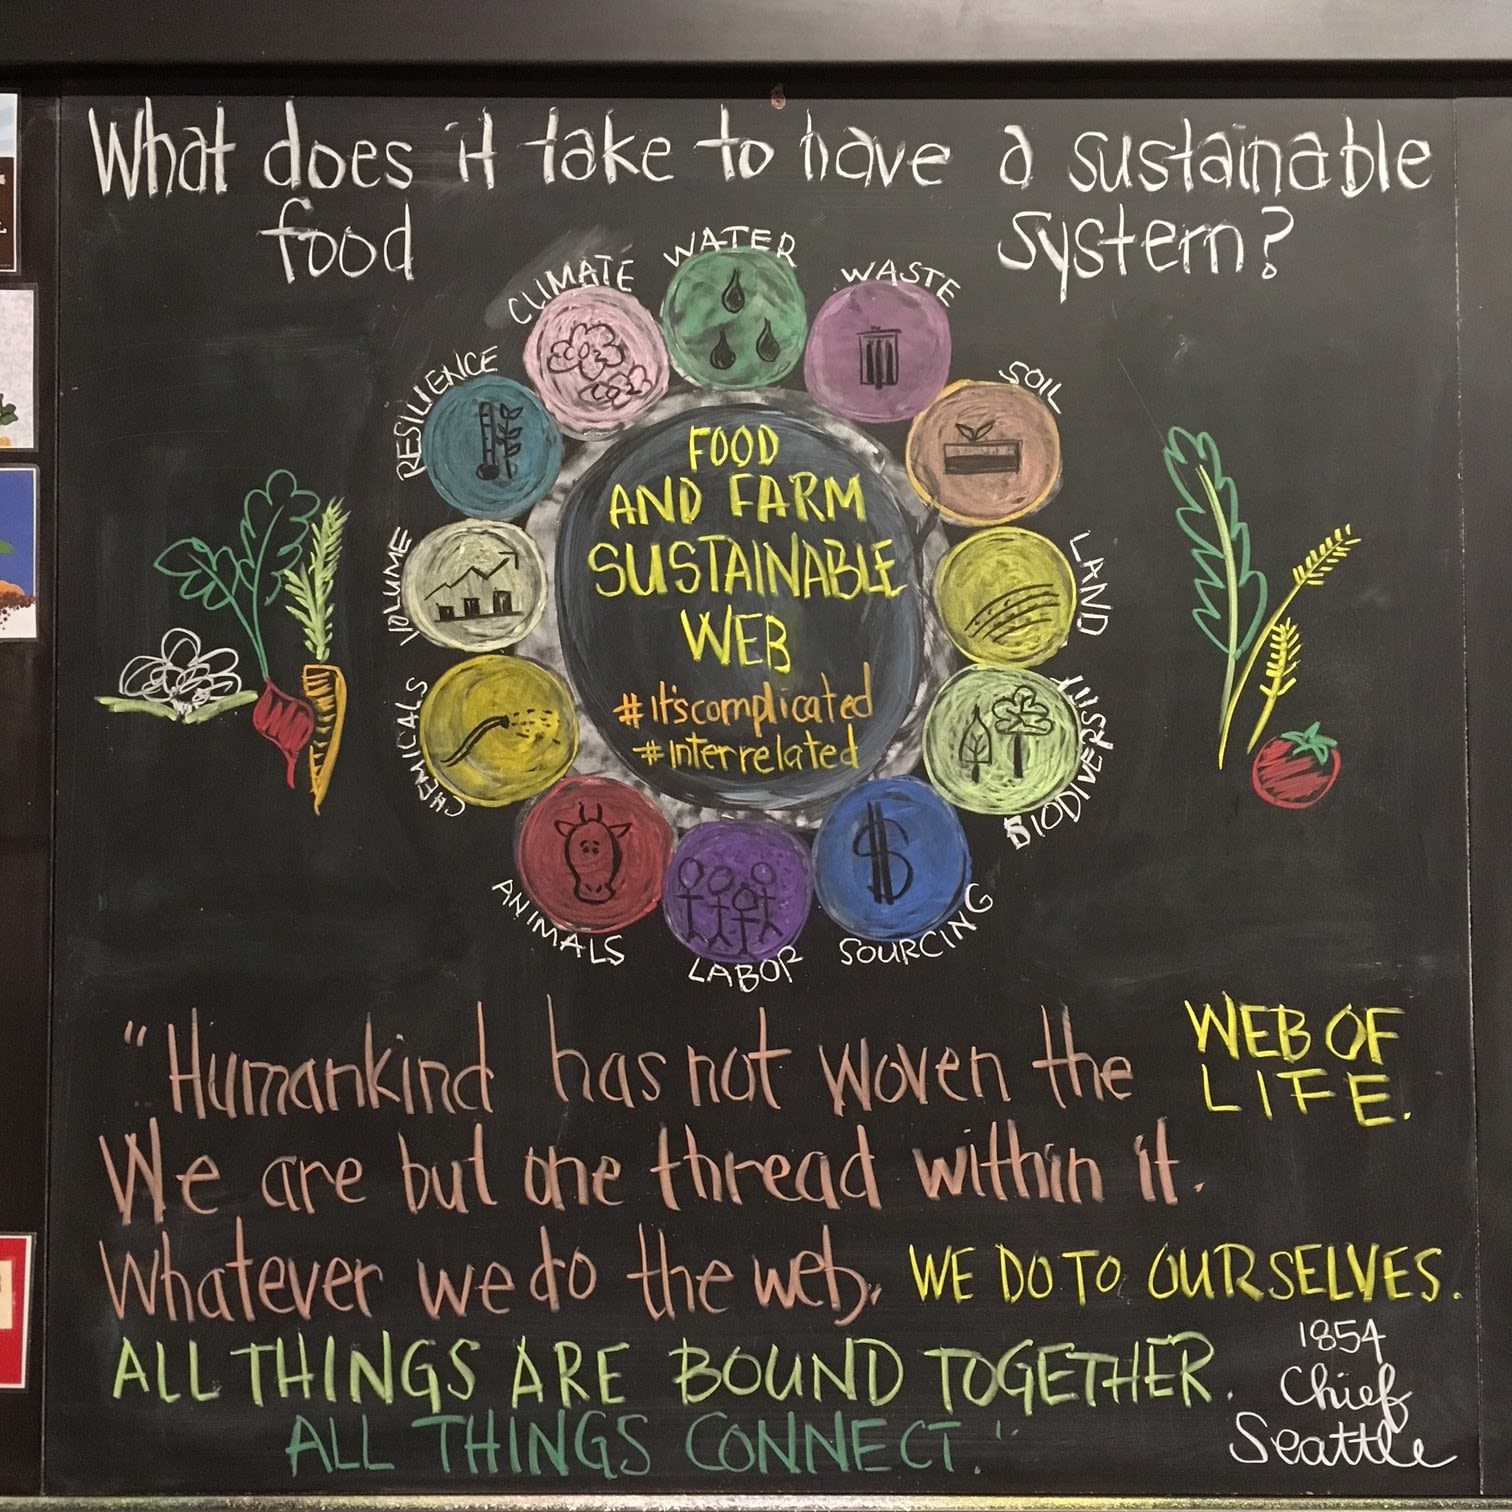 What does it take to have a sustainable
food system?
WATER
WASTE
SOIL
LAND
BIODIVERSITY
SOURCING
LABOR
ANIMALS
CHEMICALS
VOLUME
RESILIENCE
CLIMATE
FOOD
AND FARM
SUSTAINABLE
WEB
#It'scomplicated
#Interrelated
"Humankind has not woven the WEB OF
LIFE.
We are but one thread within it.
Whatever we do to the web, WE DO TO OURSELVES.
ALL THINGS ARE BOUND TOGETHER.
ALL THINGS CONNECT."
1854
Chief
Seattle